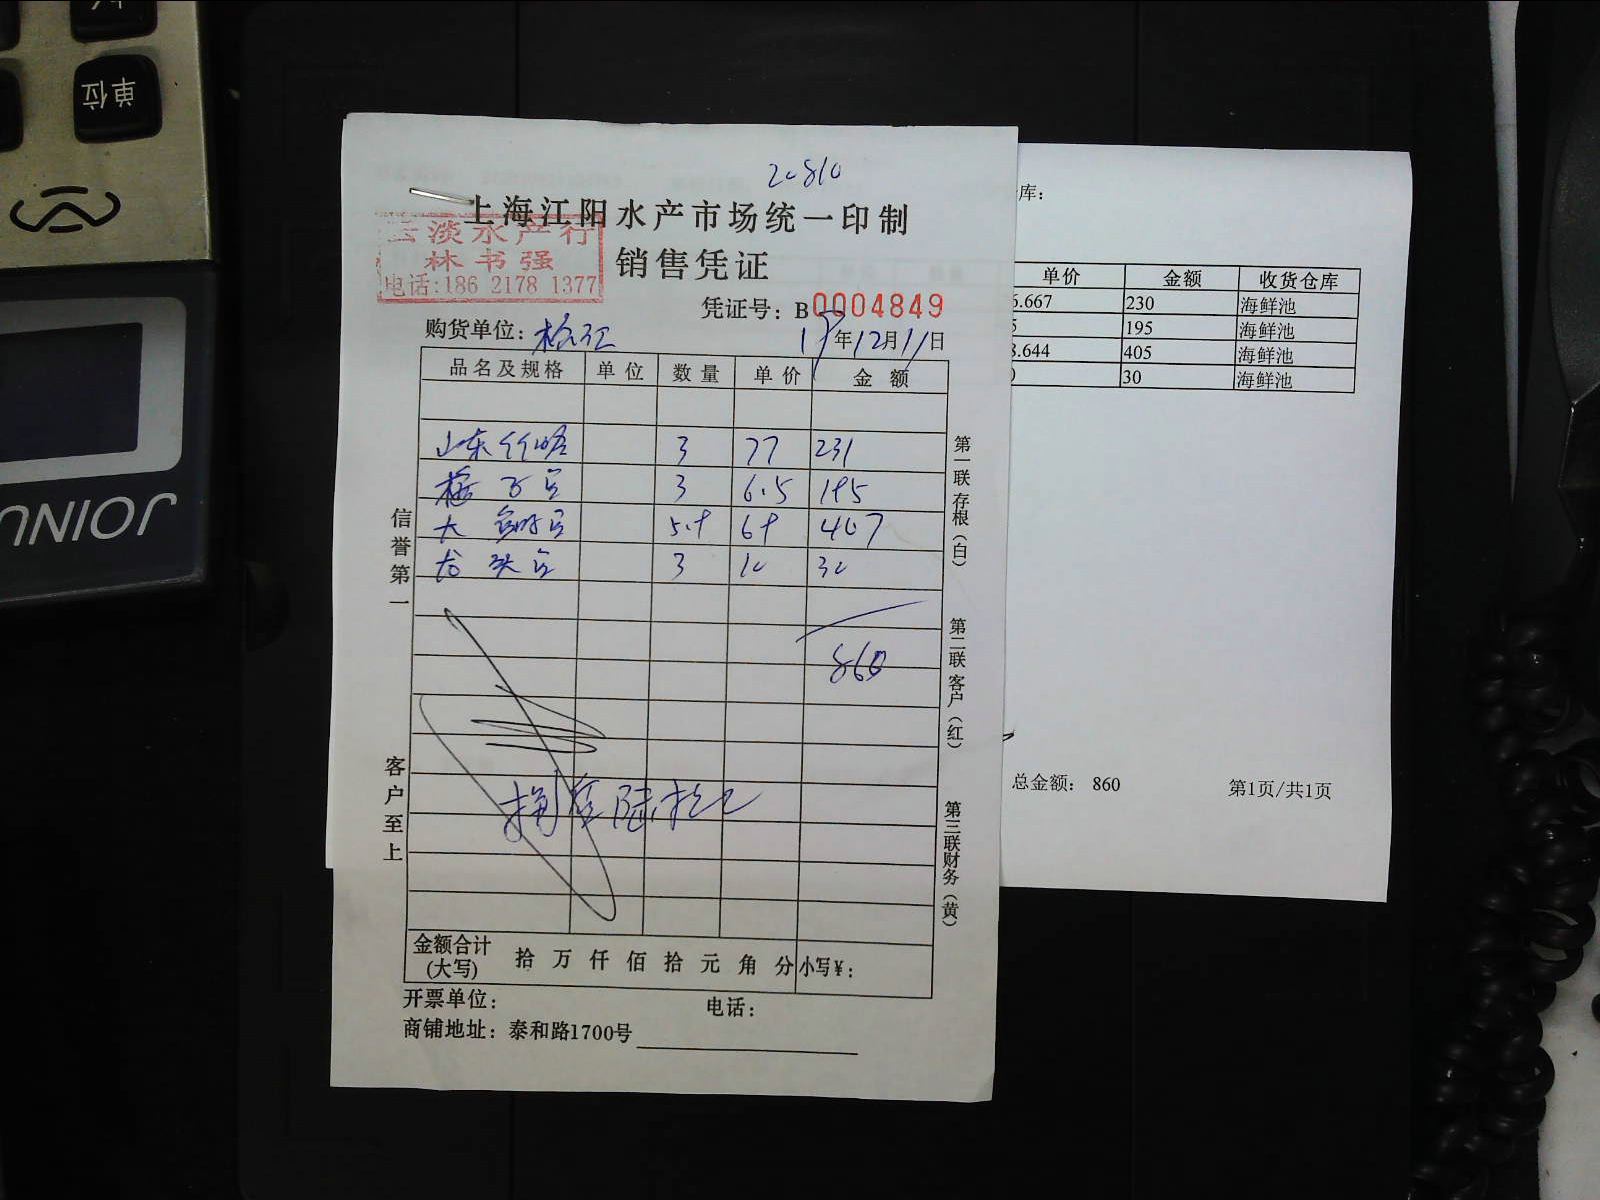 单位
JOINU
20810
上海江阳水产市场统一印制
云淡水产行
林书强
电话:186 2178 1377
销售凭证
凭证号: B0004849
购货单位:
19年12月11日
品名及规格 单位 数量 单价 金额
山东 3 77 231
梅子 3 6.5 195
大 5.9 69 407
龙头 3 10 30
860
捌佰陆拾元
信誉第一
客户至上
第一联存根(白)
第二联客户(红)
第三联财务(黄)
金额合计(大写) 拾 万 仟 佰 拾 元 角 分 小写¥:
开票单位: 电话:
商铺地址: 泰和路1700号
库:
单价 金额 收货仓库
6.667 230 海鲜池
5 195 海鲜池
8.644 405 海鲜池
0 30 海鲜池
总金额: 860 第1页/共1页